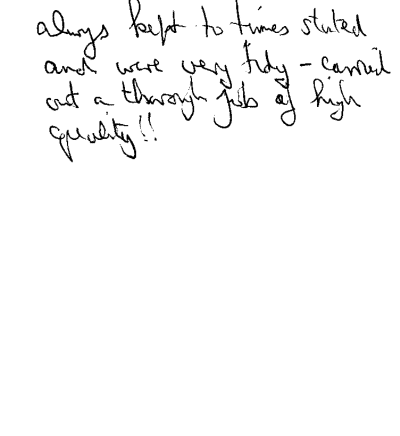 always kept to times stated
and were very tidy - carried
out a thorough job of high
quality!!